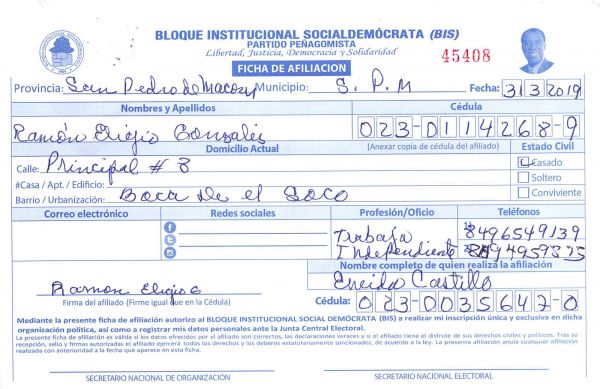 BLOQUE INSTITUCIONAL SOCIALDEMÓCRATA (BIS)
PARTIDO PEÑAGOMISTA
Libertad, Justicia, Democracia y Solidaridad
45408
FICHA DE AFILIACION
Provincia: San Pedro de Macorís Municipio: S. P. M Fecha: 31 3 2019
Nombres y Apellidos Cédula
Ramón Eligio Gonzales 023-0114268-9
Domicilio Actual (Anexar copia de cédula del afiliado) Estado Civil
Calle: Principal # 8 Casado
#Casa / Apt. / Edificio: Soltero
Barrio / Urbanización: Boca De el Soco Conviviente
Correo electrónico Redes sociales Profesión/Oficio Teléfonos
Trabaja 8496549139
Independiente
Nombre completo de quien realiza la afiliación
Ramon Eligio G Eneida Castillo
Firma del afiliado (Firme igual que en la Cédula) Cédula: 023-0035647-0
Mediante la presente ficha de afiliación autorizo al BLOQUE INSTITUCIONAL SOCIAL DEMÓCRATA (BIS) a realizar mi inscripción única y exclusiva en dicha
organización política, así como a registrar mis datos personales ante la Junta Central Electoral.
La presente ficha de afiliación es válida si los datos ofrecidos por el afiliado son correctos, las declaraciones veraces y si el afiliado tiene el disfrute de sus derechos civiles y políticos. Tras su
recepción, sello y firmas autorizadas el afiliado ejercerá todos los derechos y los deberes estatutariamente sancionados, de acuerdo a la ley. La presente afiliación anula cualquiera
realizada con anterioridad a la fecha que aparece en esta ficha.
SECRETARIO NACIONAL DE ORGANIZACIÓN SECRETARIO NACIONAL ELECTORAL